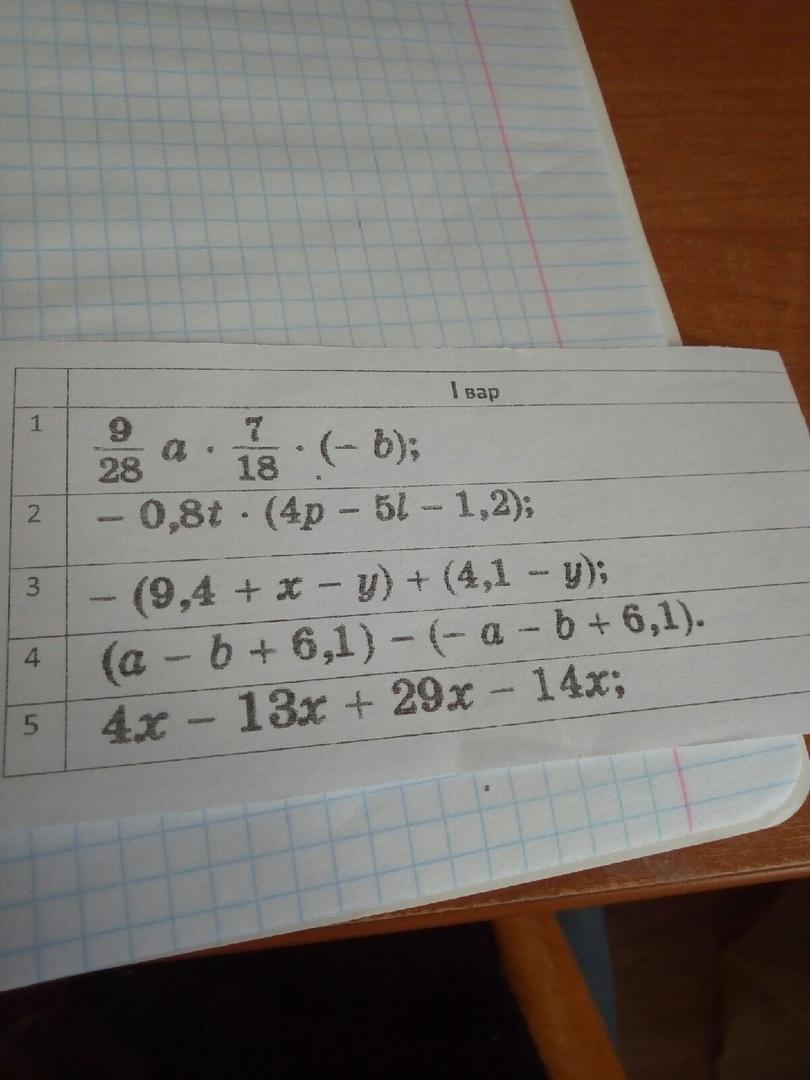 I вар
1 9/28 a · 7/18 · (− b);
2 − 0,8t · (4p − 5l − 1,2);
3 − (9,4 + x − y) + (4,1 − y);
4 (a − b + 6,1) − (− a − b + 6,1).
5 4x − 13x + 29x − 14x;